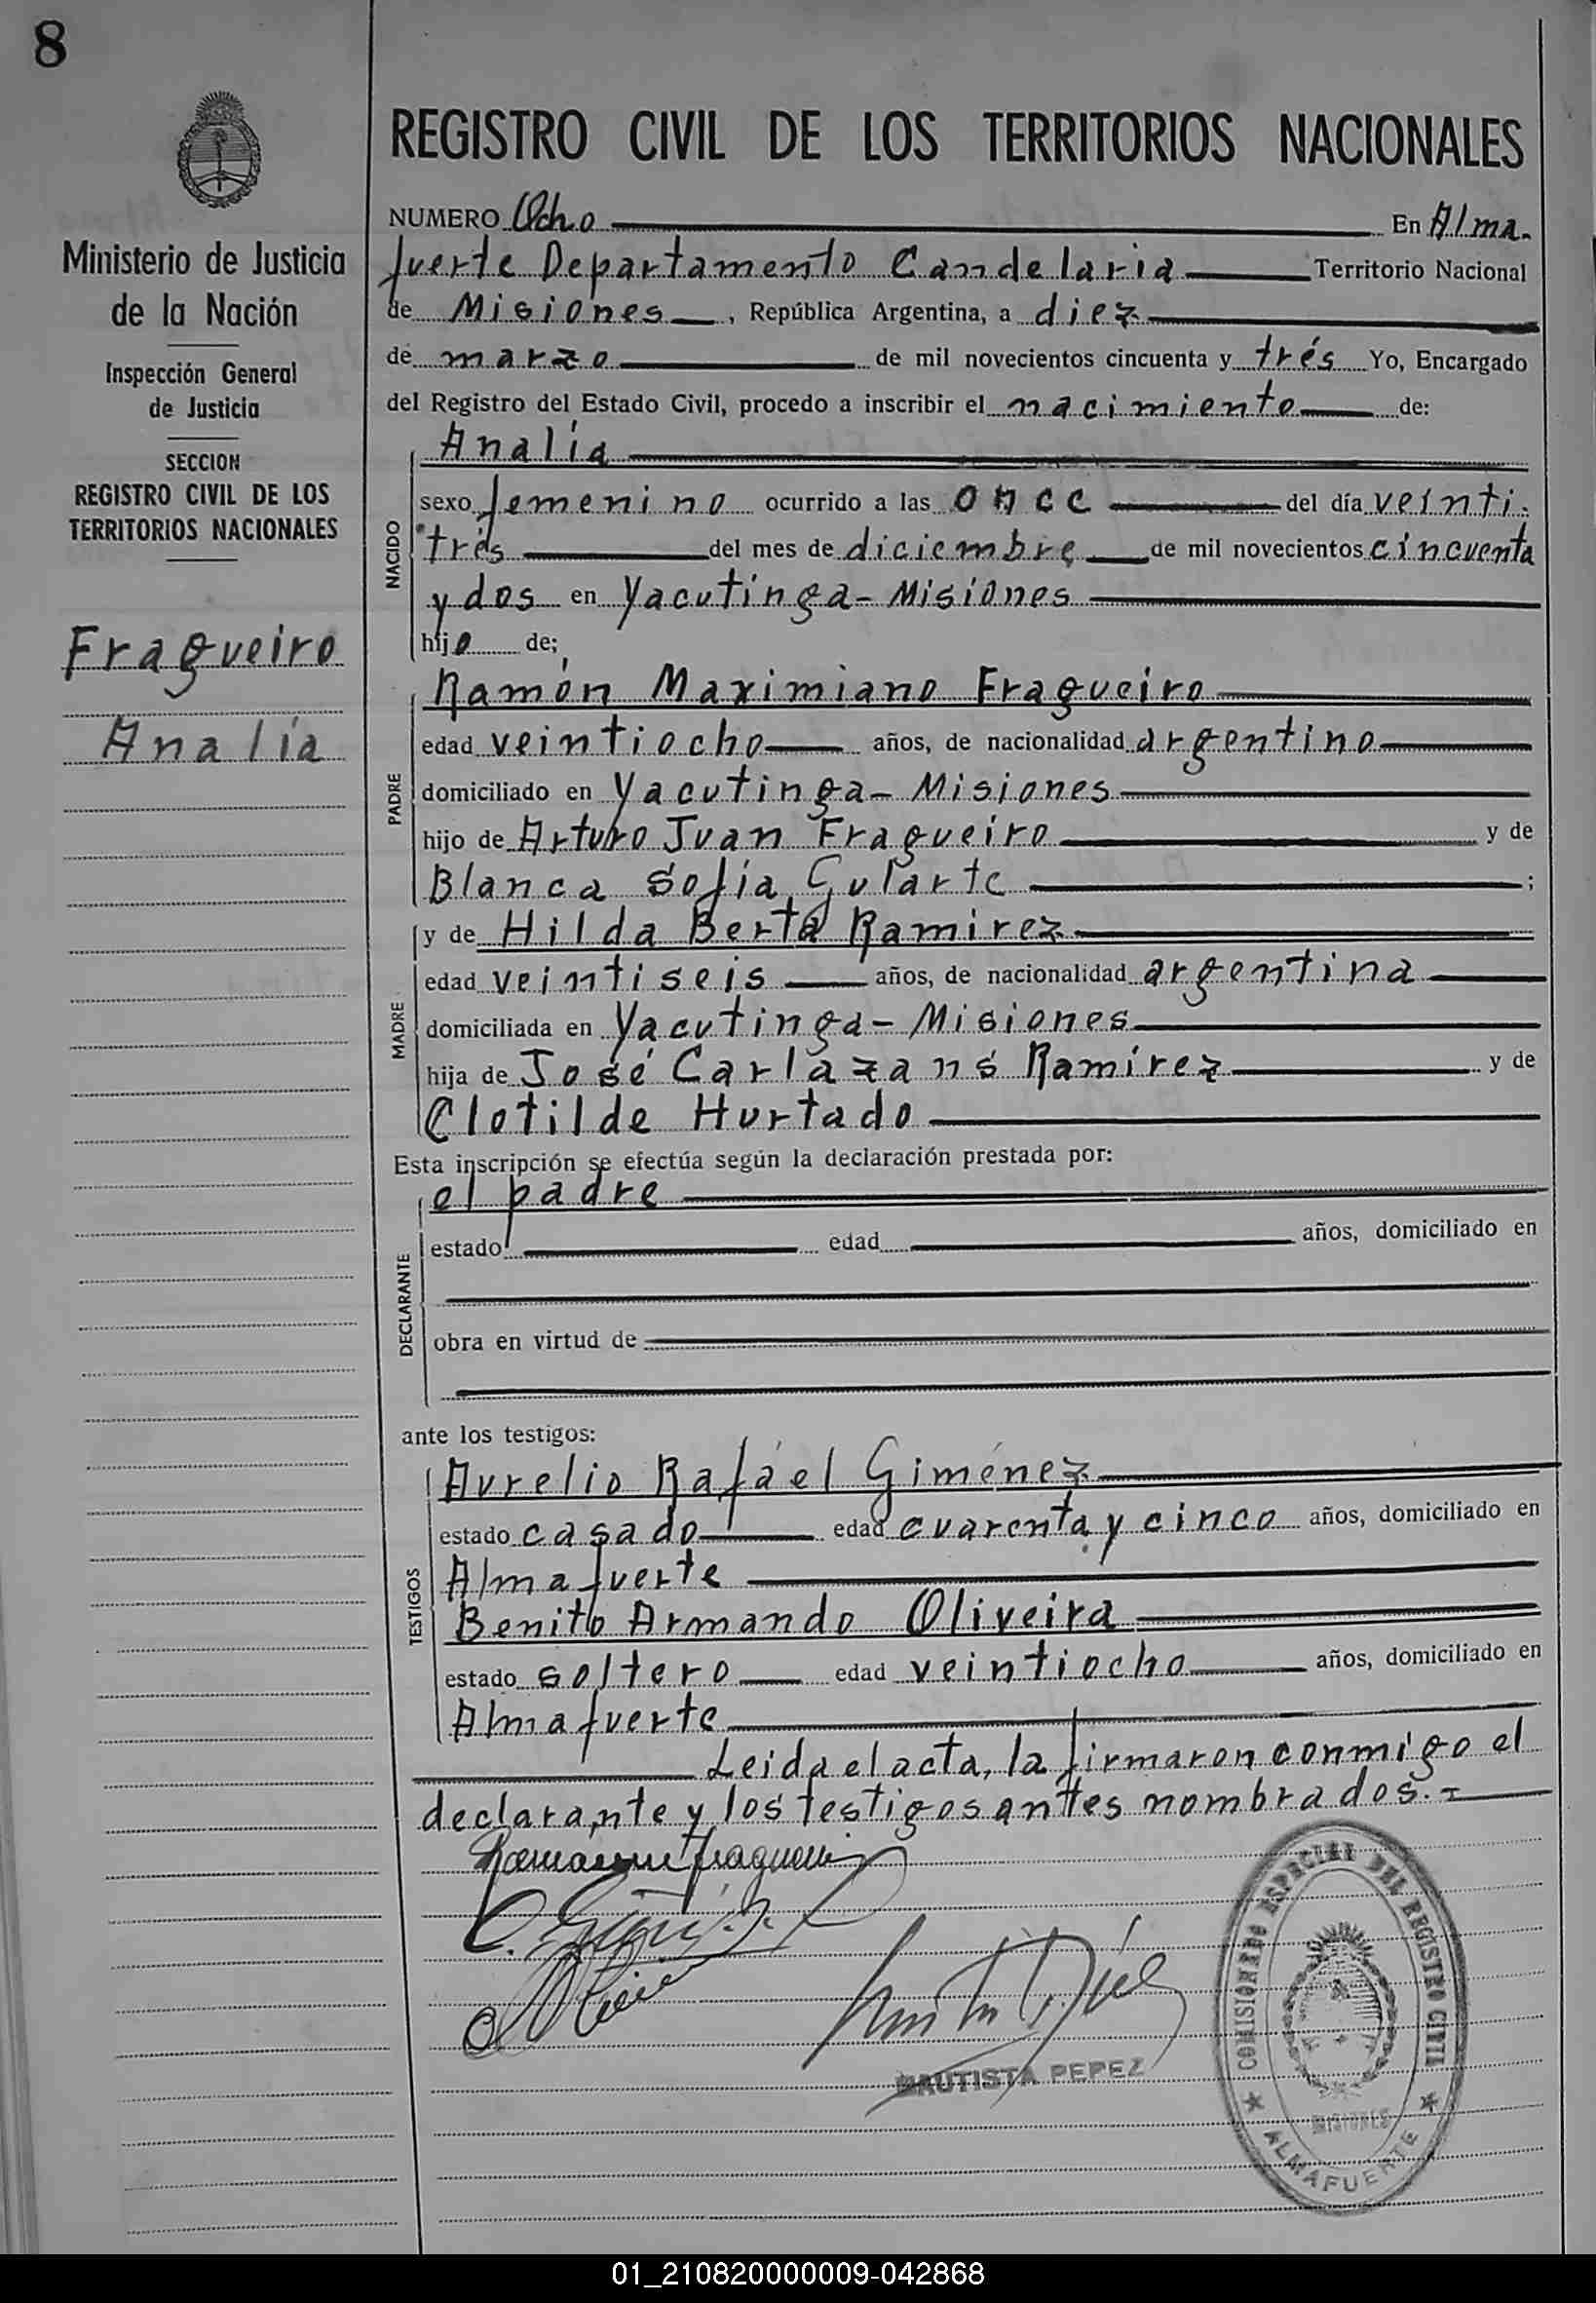 8
Ministerio de Justicia
de la Nación
Inspección General
de Justicia
SECCION
REGISTRO CIVIL DE LOS
TERRITORIOS NACIONALES
Fragueiro
Analía
REGISTRO CIVIL DE LOS TERRITORIOS NACIONALES
NUMERO Ocho En Alma-
fuerte Departamento Candelaria Territorio Nacional
de Misiones, República Argentina, a diez
de marzo de mil novecientos cincuenta y trés Yo, Encargado
del Registro del Estado Civil, procedo a inscribir el nacimiento de:
NACIDO
Analía
sexo femenino ocurrido a las once del día veinti-
trés del mes de diciembre de mil novecientos cincuenta
y dos en Yacutinga - Misiones
hijo de;
PADRE
Ramón Maximiano Fragueiro
edad veintiocho años, de nacionalidad argentino
domiciliado en Yacutinga - Misiones
hijo de Arturo Juan Fragueiro y de
Blanca Sofía Gularte ;
MADRE
y de Hilda Berta Ramirez
edad veintiseis años, de nacionalidad argentina
domiciliada en Yacutinga - Misiones
hija de José Carlazans Ramírez y de
Clotilde Hurtado
Esta inscripción se efectúa según la declaración prestada por:
DECLARANTE
el padre
estado edad años, domiciliado en
obra en virtud de
ante los testigos:
TESTIGOS
Aurelio Rafael Giménez
estado casado edad cuarenta y cinco años, domiciliado en
Almafuerte
Benito Armando Oliveira
estado soltero edad veintiocho años, domiciliado en
Almafuerte
Leida el acta, la firmaron conmigo el
declarante y los testigos anttes nombrados.-
BAUTISTA PEPEZ
COMISIONADO ESPECIAL DEL REGISTRO CIVIL
MISIONES
ALMAFUERTE
01_210820000009-042868